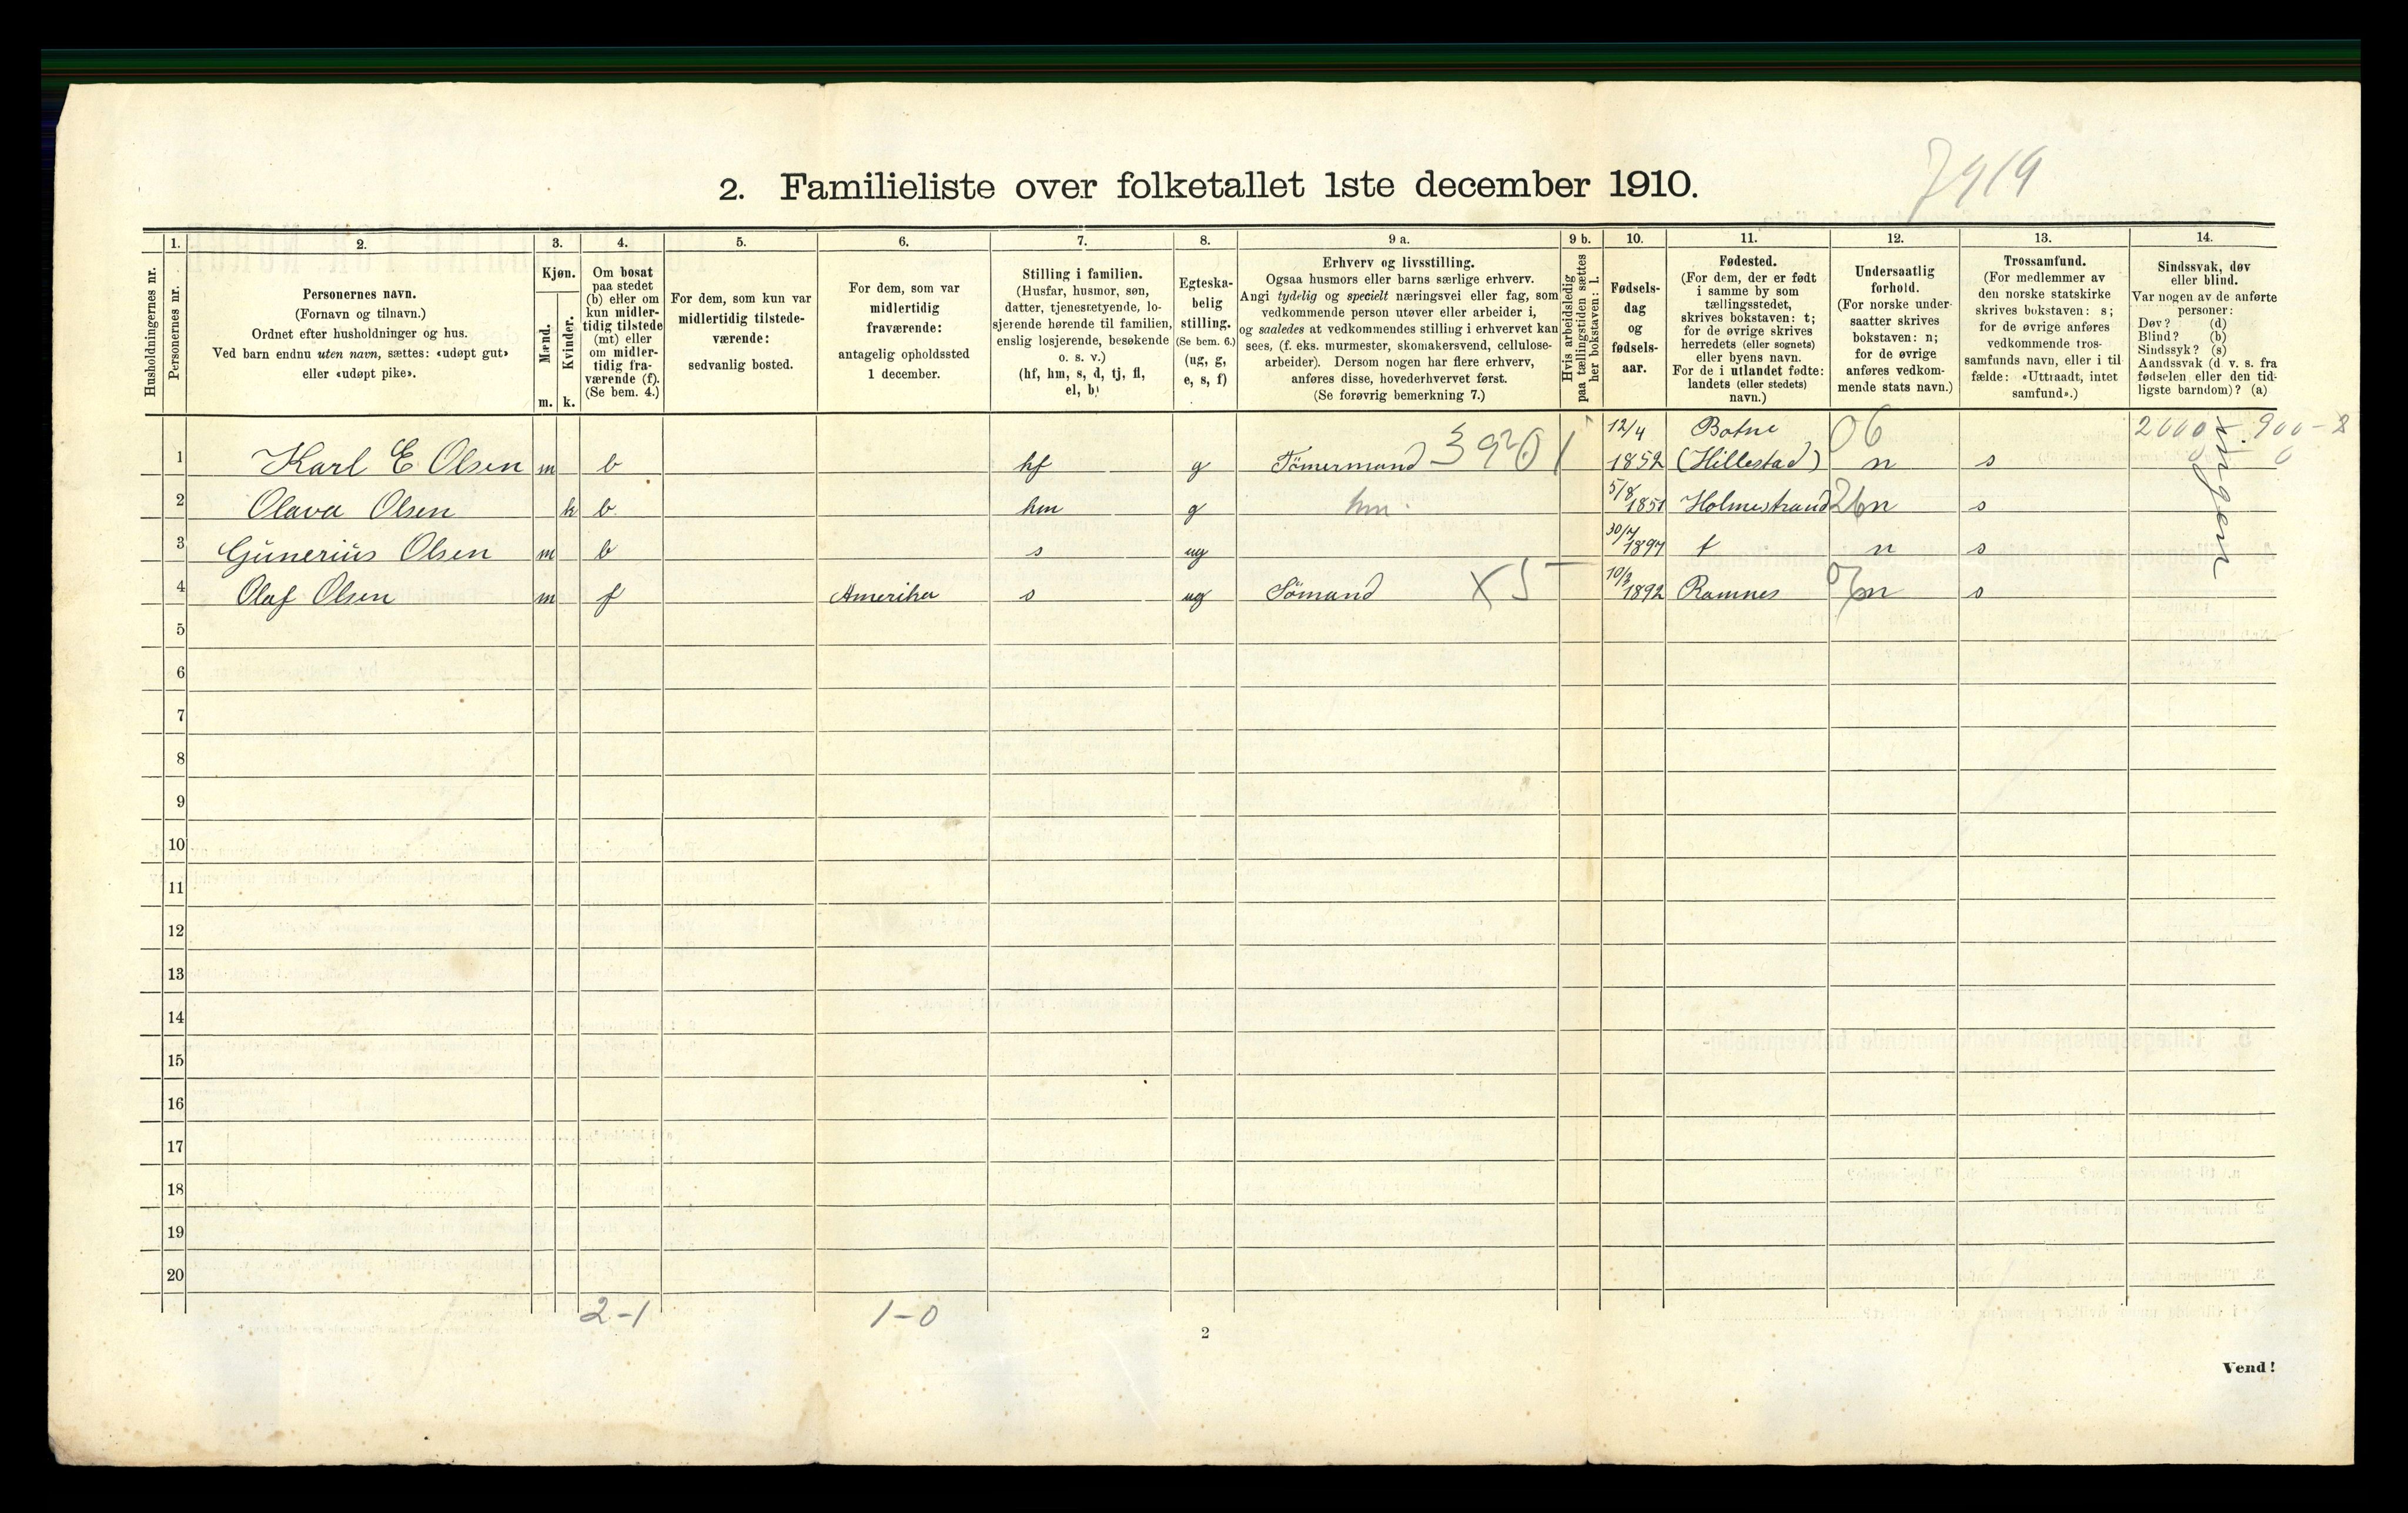 7919
2. Familieliste over folketallet 1ste december 1910.
Husholdningernes nr.
1.
Personernes nr.
2.
Personernes navn.
(Fornavn og tilnavn.)
Ordnet efter husholdninger og hus.
Ved barn endnu uten navn, sættes: «udøpt gut»
eller «udøpt pike».
3.
Kjøn.
Mænd.
Kvinder.
m. k.
4.
Om bosat
paa stedet
(b) eller om
kun midler-
tidig tilstede
(mt) eller
om midler-
tidig fra-
værende (f).
(Se bem. 4.)
5.
For dem, som kun var
midlertidig tilstede-
værende:
sedvanlig bosted.
6.
For dem, som var
midlertidig
fraværende:
antagelig opholdssted
1 december.
7.
Stilling i familien.
(Husfar, husmor, søn,
datter, tjenestetyende, lo-
sjerende hørende til familien,
enslig losjerende, besøkende
o. s. v.)
(hf, hm, s, d, tj, fl,
el, b)
8.
Egteska-
belig
stilling.
(Se bem. 6.)
(ug, g,
e, s, f)
9 a.
Erhverv og livsstilling.
Ogsaa husmors eller barns særlige erhverv.
Angi tydelig og specielt næringsvei eller fag, som
vedkommende person utøver eller arbeider i,
og saaledes at vedkommendes stilling i erhvervet kan
sees, (f. eks. murmester, skomakersvend, cellulose-
arbeider). Dersom nogen har flere erhverv,
anføres disse, hovederhvervet først.
(Se forøvrig bemerkning 7.)
9 b.
Hvis arbeidsledig
paa tællingstiden sættes
her bokstaven: l.
10.
Fødsels-
dag
og
fødsels-
aar.
11.
Fødested.
(For dem, der er født
i samme by som
tællingsstedet,
skrives bokstaven: t;
for de øvrige skrives
herredets (eller sognets)
eller byens navn.
For de i utlandet fødte:
landets (eller stedets)
navn.)
12.
Undersaatlig
forhold.
(For norske under-
saatter skrives
bokstaven: n;
for de øvrige
anføres vedkom-
mende stats navn.)
13.
Trossamfund.
(For medlemmer av
den norske statskirke
skrives bokstaven: s;
for de øvrige anføres
vedkommende tros-
samfunds navn, eller i til-
fælde: «Uttraadt, intet
samfund».)
14.
Sindssvak, døv
eller blind.
Var nogen av de anførte
personer:
Døv? (d)
Blind? (b)
Sindssyk? (s)
Aandssvak (d. v. s. fra
fødselen eller den tid-
ligste barndom)? (a)
1 Karl E Olsen m b hf g Tömermand 3920 12/4 1852 Botne (Hillestad) 06 n s 2000 - 900 - 8
2 Olava Olsen k b hm g hm 5/8 1851 Holmestrand 26 n s
3 Gunerius Olsen m b s ug 1897 t n s
4 Olaf Olsen m f Amerika s ug Sömand X 5 1892 Ramnes 07 n s
ingen
5
6
7
8
9
10
11
12
13
14
15
16
17
18
19
20
2-1 1-0
2
Vend!